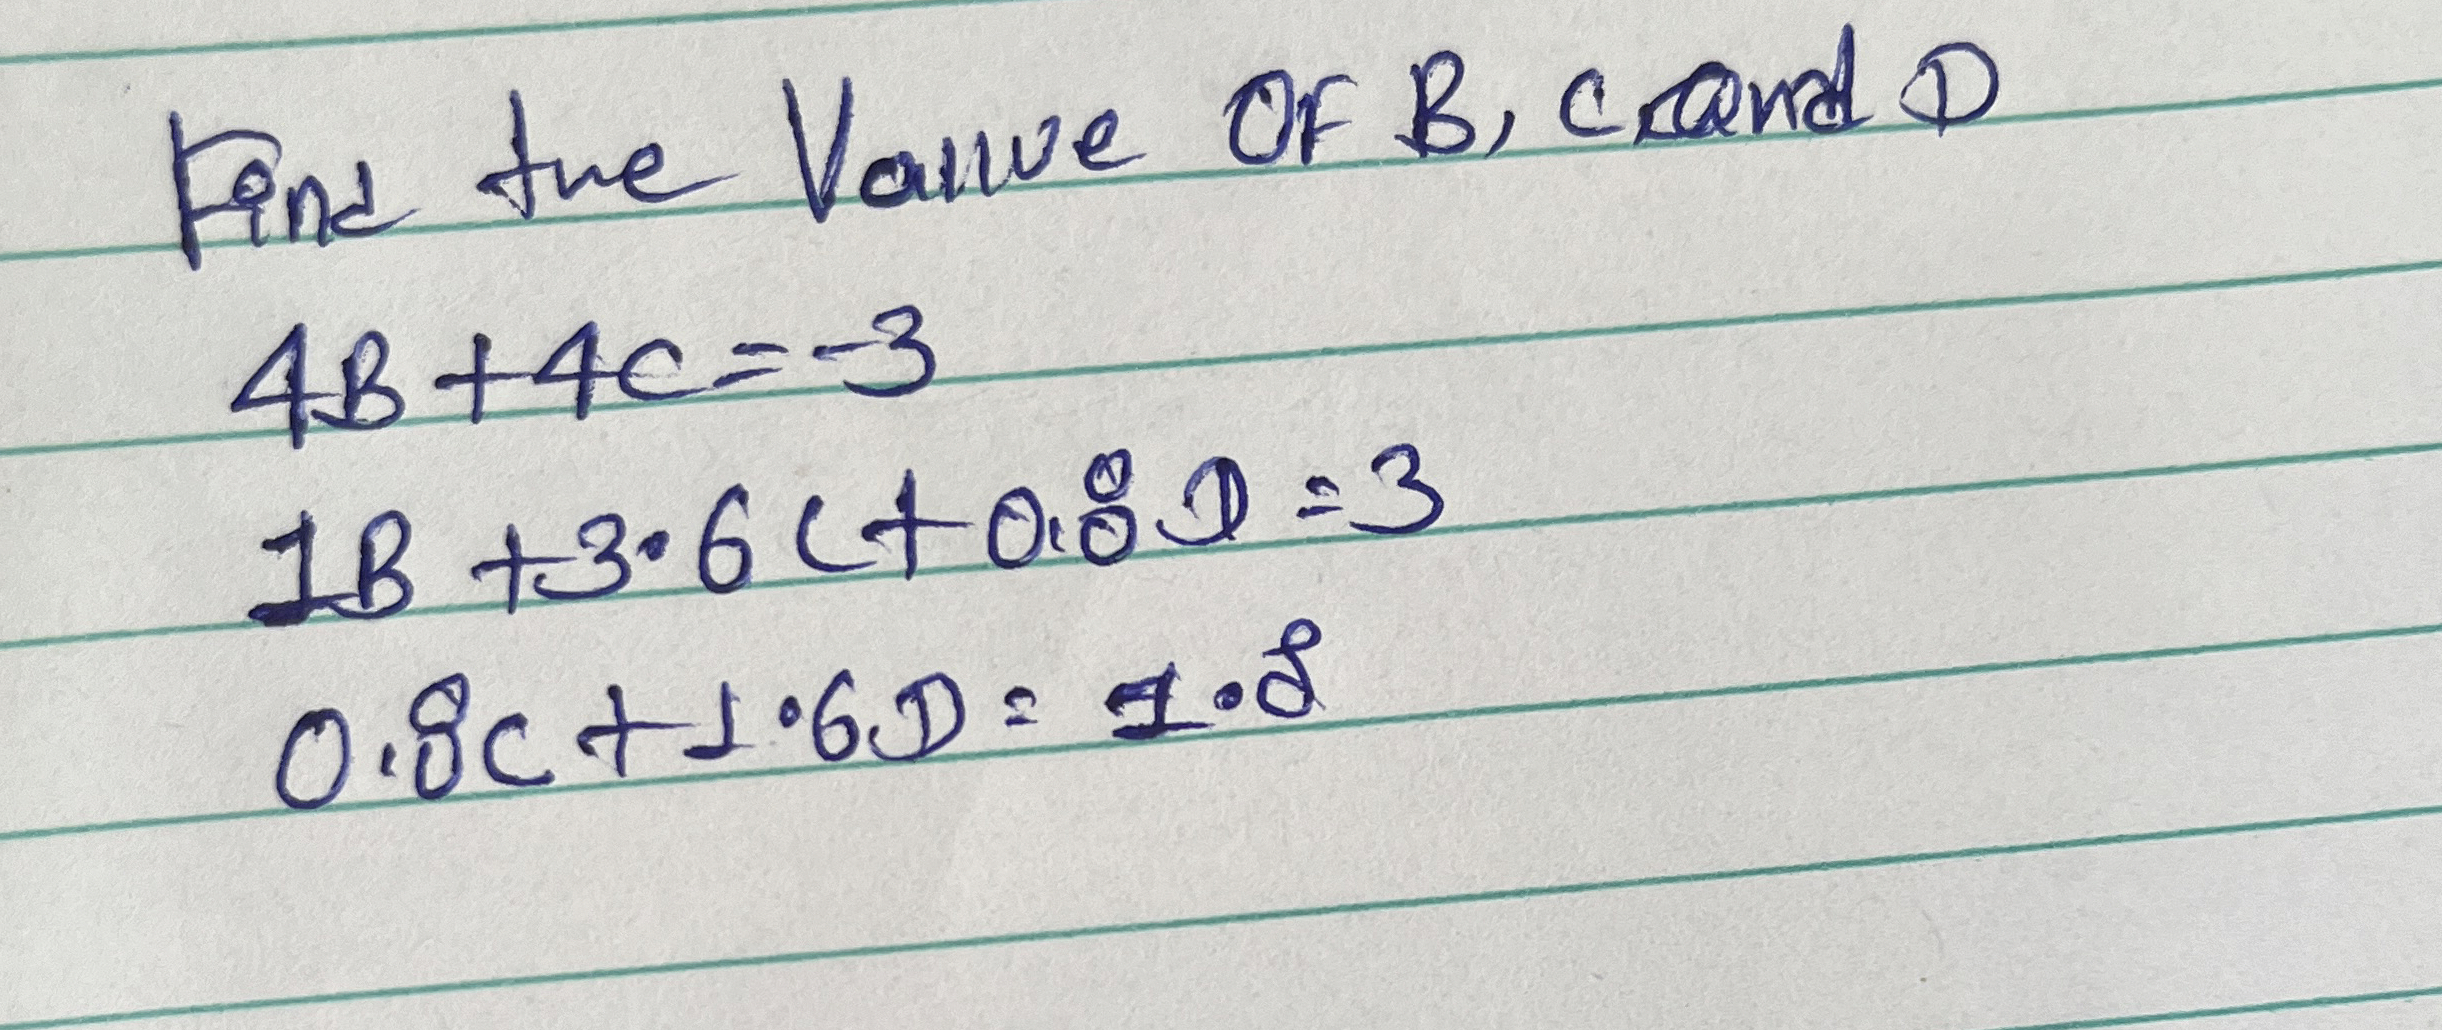 Find the Value OF B, C, and D
4B + 4C = -3
1B + 3.6C + 0.8D = 3
0.8C + 1.6D = 1.8